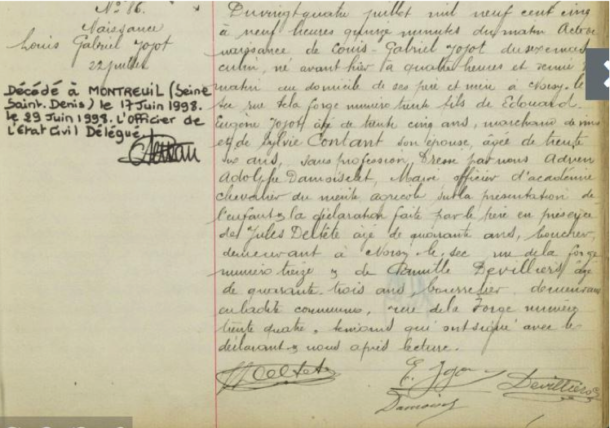 N° 86.
Naissance
Louis Gabriel Jojot
22 juillet
Décédé à MONTREUIL (Seine
Saint. Denis) le 17 Juin 1998.
le 29 Juin 1998. L'officier de
l'Etat Civil Délégué
Du vingt quatre juillet mil neuf cent cinq
à neuf heures quinze minutes du matin Acte de
naissance de Louis-Gabriel Jojot du sexe mas
culin, né avant hier à quatre heures et demie du
matin au domicile de ses père et mère à Noisy-le
Sec rue de la forge numéro trente fils de Edouard
Eugène Jojot âgé de trente cinq ans, marchand de vins
et de Sylvie Contant son épouse, âgée de trente
six ans, sans profession, Dressé par nous
Adolphe Damoiselet, Maire officier d'académie
chevalier du mérite agricole sur la présentation de
l'enfant & la déclaration faite par le père en présence
de Jules Deltête âgé de quarante ans, boucher,
demeurant à Noisy-le-sec, rue de la forge
numéro treize & de Camille Devilliers âgé
de quarante trois ans, bourrelier demeurant
en ladite commune, rue de la Forge numéro
trente quatre, témoins qui ont signé avec le
déclarant & nous après lecture.
Deltete E. Jojot Devilliers